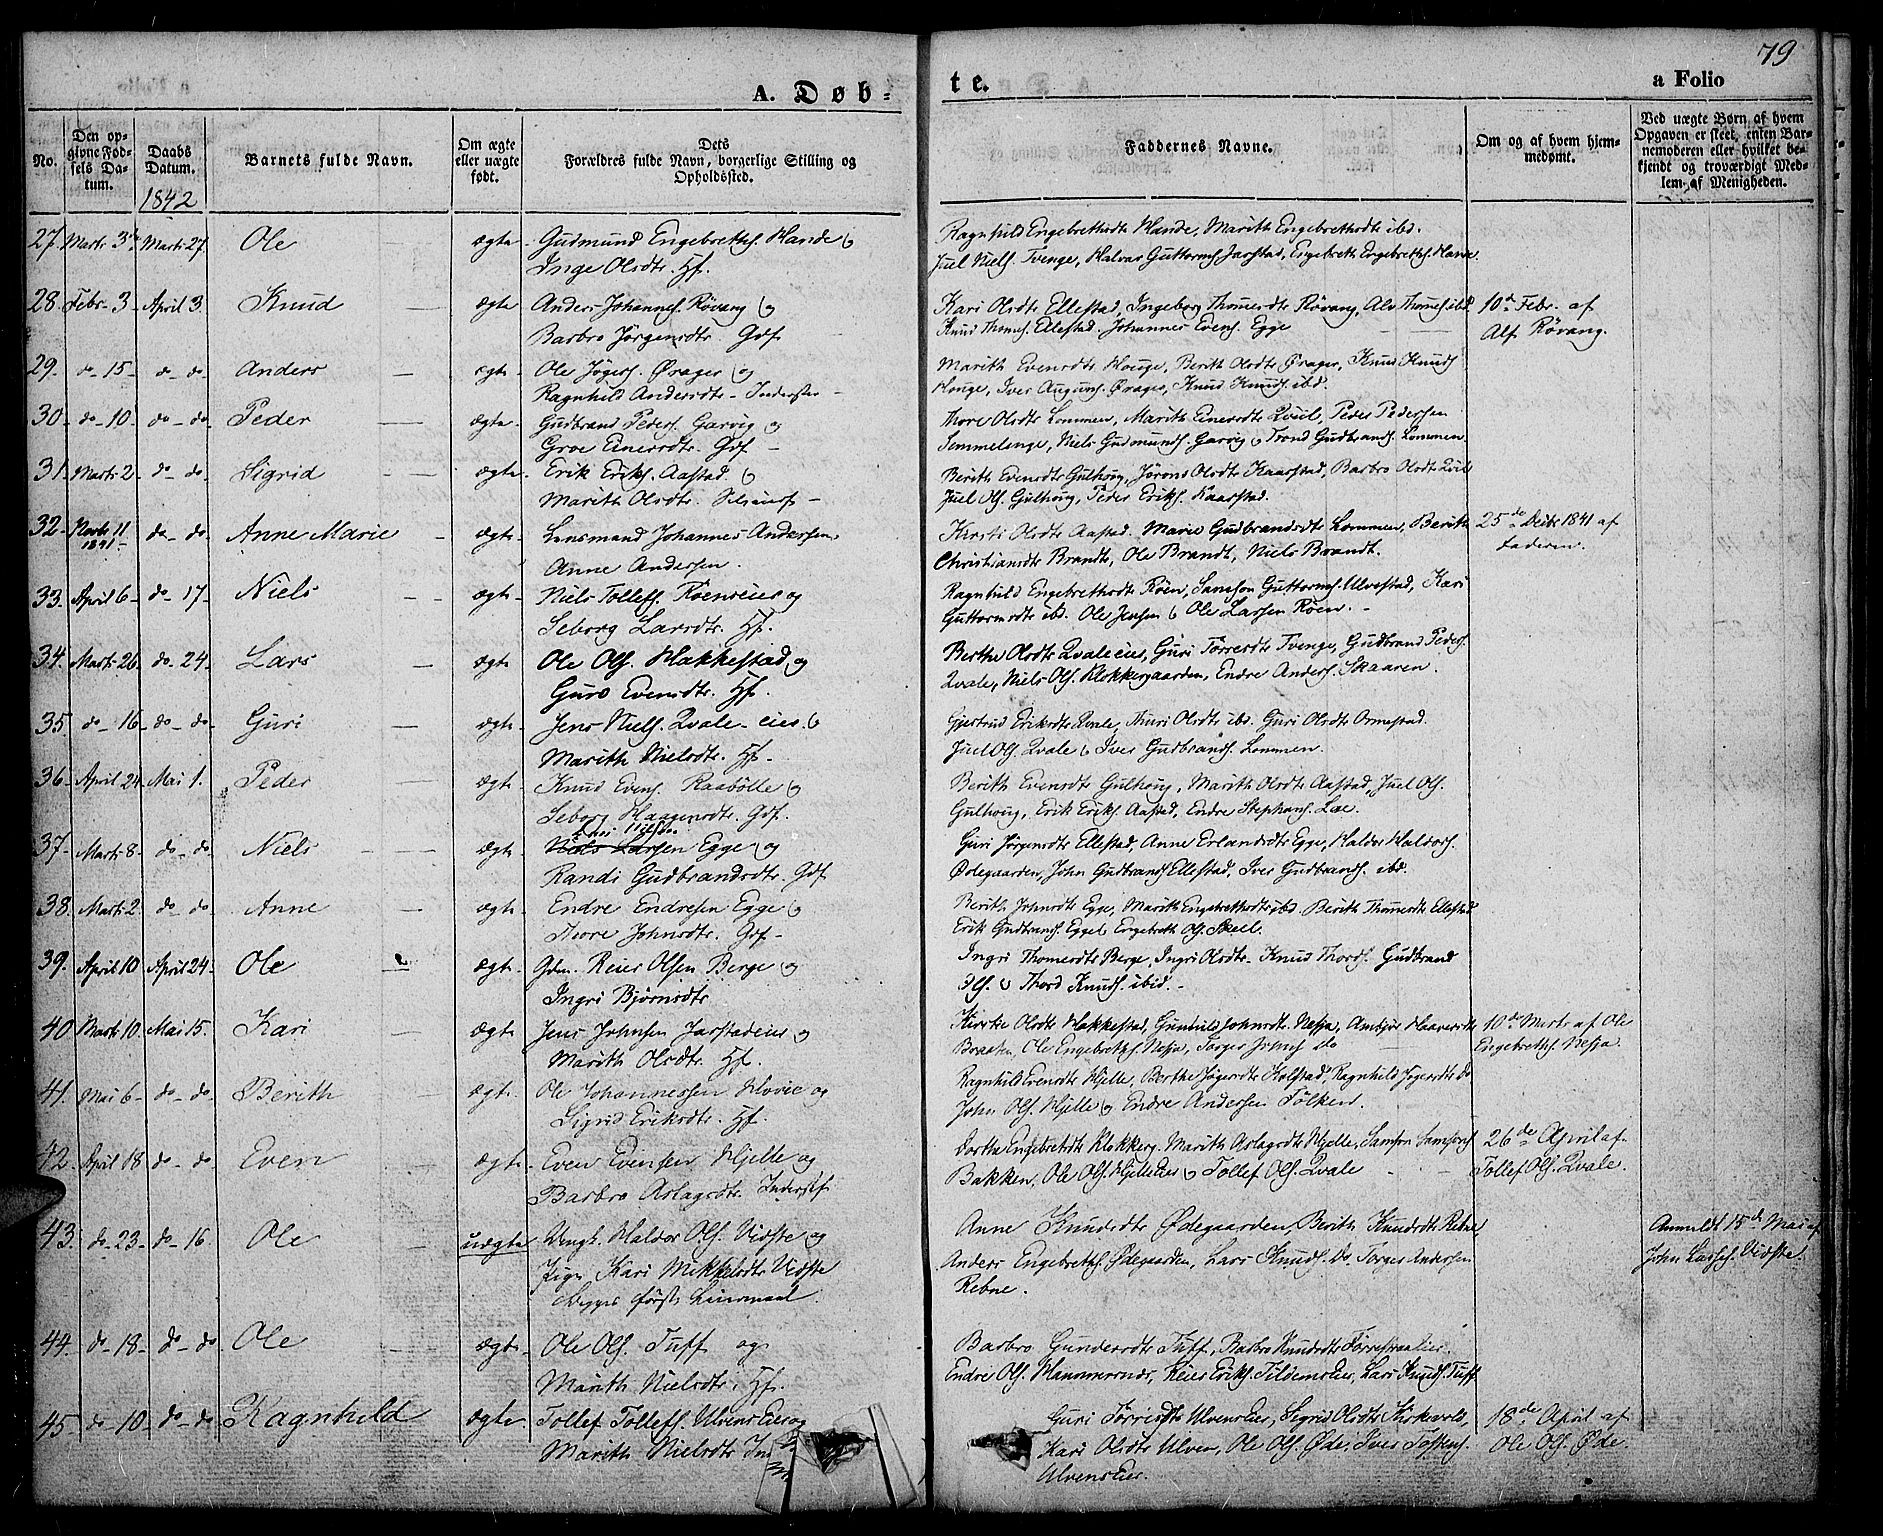 79
A. Døb-
te.
a Folio
No.
Den op-
givne Fød-
sels Da-
tum.
Daabs
Datum.
1842
Barnets fulde Navn.
Om ægte
eller uægte
født.
Dets
Forældres fulde Navn, borgerlige Stilling og
Opholdssted.
Faddernes Navne.
Om og af hvem hjem-
medømt.
Ved uægte Børn af hvem
Opgaven er skeet, enten Bar-
nemoderen eller hvilket be-
kjendt og troværdigt Med-
lem af Menigheden.
27. Marts 3 Marts 27. Ole ægte Gudmund Engebrethsf. Hande &
Inge Olsdtr. Hf.
Ragnhild Engebrethsdtr Hande, Marith Engebrethsdtr ibd.
Juel Nielsf. Tvenge, Halvor Guttormsf. Jarstad, Engebreth Engebrethsf. Hande
28. Febr. 3 April 3. Knud — ægte Anders Johannesf. Røvang &
Barbro Jørgensdtr. Gdf.
Kari Olsdtr Ellestad, Ingeborg Thomesdtr Røvang, Alv Thomesf. ibd.
Knud Thomesf. Ellestad. Johannes Evensf. Egge
10de Febr. af
Alf Røvang.
29. do 15 do do Anders — ægte Ole Jøgersf. Ørager &
Ragnhild Andersdtr - Inderster -
Marith Evensdtr Houge, Berith Olsdtr Ørager, Knud Knudsf.
Houge, Iver Augunsf. Ørager, Knud Knudsf. ibd.
30 do 10 do do Peder — ægte Gudbrand Pedersf. Garvig &
Groe Einersdtr. Gdf -
Thore Olsdtr Lommen, Marith Einersdtr Qvil, Peder Pedersen
Semmelenge, Niels Gudmundsf. Garvig & Trond Gudbrandsf. Lommen
31. Marts 2 do do Sigrid — ægte Erik Eriksf. Aastad &
Marith Olsdtr.
Berith Evensdtr Gulhoug, Jørond Olsdtr Kaarstad, Barbro Olsdtr Qvil
Juel Olsf. Gulhoug, Peder Eriksf. Kaarstad.
32. 11
1841 do do Anne Marie - ægte Lensmand Johannes Andersen,
Anne Andersen.
Kirsti Olsdtr Aastad. Marie Gudbrandsdtr Lommen, Berith
Christiansdtr Brandt, Ole Brandt, Niels Brandt.
25de Decbr 1841 af
Faderen.
33. April 6 do 17 Niels — ægte Niels Tollefsf. Røenseie &
Seborg Larsdtr. Hf.
Ragnhild Engebrethsdtr Røen, Samson Guttormsf. Ulvestad, Kari
Guttormsdtr ibd. Ole Jensen & Ole Larsen Røen.
34. Marts 26 do 24 Lars — ægte Ole Olsf. Hakkestad &
Guro Evensdtr. Hf.
Berthe Olsdtr Qvaleeies, Guri Torresdtr Tvenge, Gudbrand Pedersf.
Qvale, Niels Olsf. Klokkergaarden, Endre Andersf. Skaaren.
35 do 16 do do Guri — ægte Jens Nielsf. Qvale-eies. &
Marith Nielsdtr. Hf.
Gjertrud Eriksdtr Qvale, Thuri Olsdtr ibd. Guri Olsdtr Ormestad.
Juel Olsf. Qvale & Iver Gudbrandsf. Lommen.
36. April 24 Mai 1. Peder — ægte Knud Evensf. Raabølle &
Seborg Haagensdtr. Gdf.
Berith Evensdtr Gulhoug, Marith Olsdtr Aastad, Juel Olsf.
Gulhoug, Erik Eriksf. Aastad, Endre Stephansf. Loe.
37. Marts 8 do do Niels — ægte Nielsen
Niels Larsen Egge &
Randi Gudbrandsdtr. Gdf.
Guri Jørgensdtr Ellestad, Anne Erlandsdtr Egge, Haldor Haldorsf.
Ødegaarden, John Gudbrandsf. Ellestad, Iver Gudbrandsf. ibd.
38. Marts 2. do do Anne — ægte Endre Endresen Egge &
Thore Johnsdtr. Gdf.
Berith Johnsdtr Egge, Marith Engebrethsdtr ibd. Berith Thomesdtr Ellestad
Erik Gudbrandsf. Egge, Engebreth Olsf. Skeel.
39. April 10 April 24 Ole ægte Gdm. Reier Olsen Berge &
Ingri Bjørnsdtr
Ingri Thomesdtr Berge, Ingri Olsdtr. Knud Thordsf. Gudbrand
Olsf. & Thord Knudsf. ibid.
40 Marts 10. Mai 15. Kari — ægte Jens Johnsen Jarstadeies &
Marith Olsdtr. Hf.
Olsdtr Hakkestad, Gunhild Johnsdtr Nesja, Ambjør Haaversdtr
Braaten, Ole Engebrethsf. Nesja, Torger Johnsf. do
10de Marts af Ole
Engebrethsf. Nesja.
41. Mai 6 do do Berith — ægte Ole Johannessen Hovie og
Sigrid Eriksdtr. Hf.
Ragnhild Evensdtr Hjelle, Berthe Jøgersdtr Kolstad, Ragnhild Jøgersdtr do
John Olsf. Hjelle, & Endre Andersen Følken.
42. April 18 do do Even — ægte Even Evensen Hjelle og
Barbro Aslagsdtr. Inderstf.
Dorthe Engebrethsdtr Klokkerg. Marith Aslagsdtr Hjelle, Samson Samsonsf.
Bakken, Ole Olsf. Hjelleeies & Tollef Olsf. Qvale
26de April af
Tollef Olsf. Qvale.
43. do 23 do 16. Ole — uægte Ungk. Haldor Olsf. Vidste og
Pige Kari Mikkelsdtr Vidste
Begges første Leiermaal.
Anne Knudsdtr Ødegaarden, Berith Knudsdtr Rebne,
Anders Engebrethsf. Ødegaarden, Lars Knudsf. do. Torger Andersen
Rebne.
Anmeldt 15de Mai af
John Larsf. Vidste.
44. do 18 do do Ole — ægte Ole Olsf. Tuff og
Marith Nielsdtr. Hf.
Barbro Gundersdtr Tuff, Barbro Knudsdtr
Endre Olsf. Hammersnæs, Reier Eriksf. Lars Knudsf. Tuff
45 do 10 do do Ragnhild ægte Tollef Tollefsf. Ulvenseies &
Marith Nielsdtr
Guri Torresdtr Ulvenseies, Sigrid Olsdtr Kirkevold,
Kari Olsdtr Ulven, Ole Olsf. Øde, Iver Tostensf.
Ulvenseies.
18de April af
Ole Olsf. Øde.